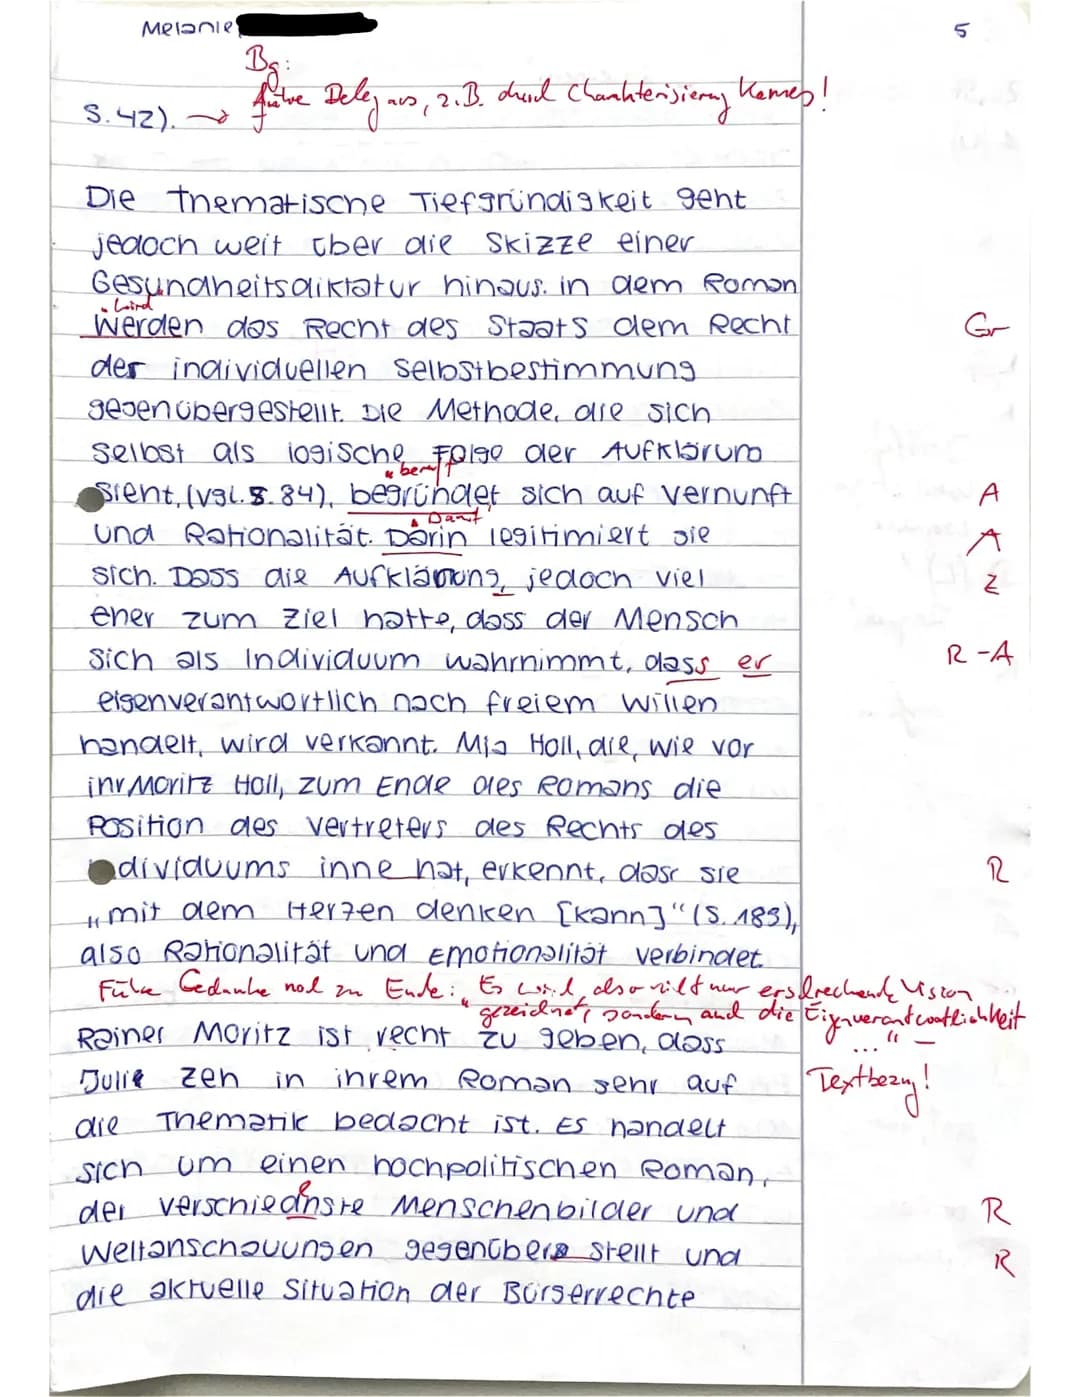 Melanie
5
Bg:
führe Beleg aus, z.B. durch Charakterisierung Kramers!
S. 42). →
Die thematische Tiefgründigkeit geht
jedoch weit über die Skizze einer
Gesundheitsdiktatur hinaus. in dem Roman
wird
werden das Recht des Staats dem Recht
Gr
der individuellen Selbstbestimmung
gegenübergestellt. Die Methode, die sich
selbst als logische Folge der Aufklärung
beruft
sieht, (vgl. S. 84), begründet sich auf Vernunft
A
Damit
und Rationalität. Darin legitimiert sie
A
sich. Dass die Aufklärung, jedoch viel
Z
eher zum Ziel hatte, dass der Mensch
sich als Individuum wahrnimmt, dass er
R - A
eigenverantwortlich nach freiem Willen
handelt, wird verkannt. Mia Holl, die, wie vor
ihr Moritz Holl, zum Ende des Romans die
Position des Vertreters des Rechts des
dividuums inne hat, erkennt, dass sie
R
"mit dem Herzen denken [kann]" (S. 189),
also Rationalität und Emotionalität verbindet.
Führe Gedanke noch zu Ende: Es wird also nicht nur erschreckende Vision
"gezeichnet, sondern auch die Eigenverantwortlichkeit
..." —
Rainer Moritz ist recht zu geben, dass
Textbezug!
Julie Zeh in ihrem Roman sehr auf
die Thematik bedacht ist. Es handelt
sich um einen hochpolitischen Roman,
e
der verschiednste Menschenbilder und
R
Weltanschauungen gegenüber stellt und
R
die aktuelle Situation der Bürgerrechte